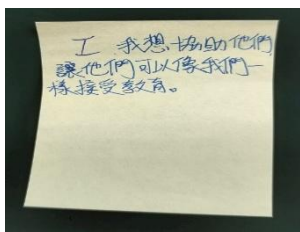 I 我想協助他們,
讓他們可以像我們一
樣接受教育。